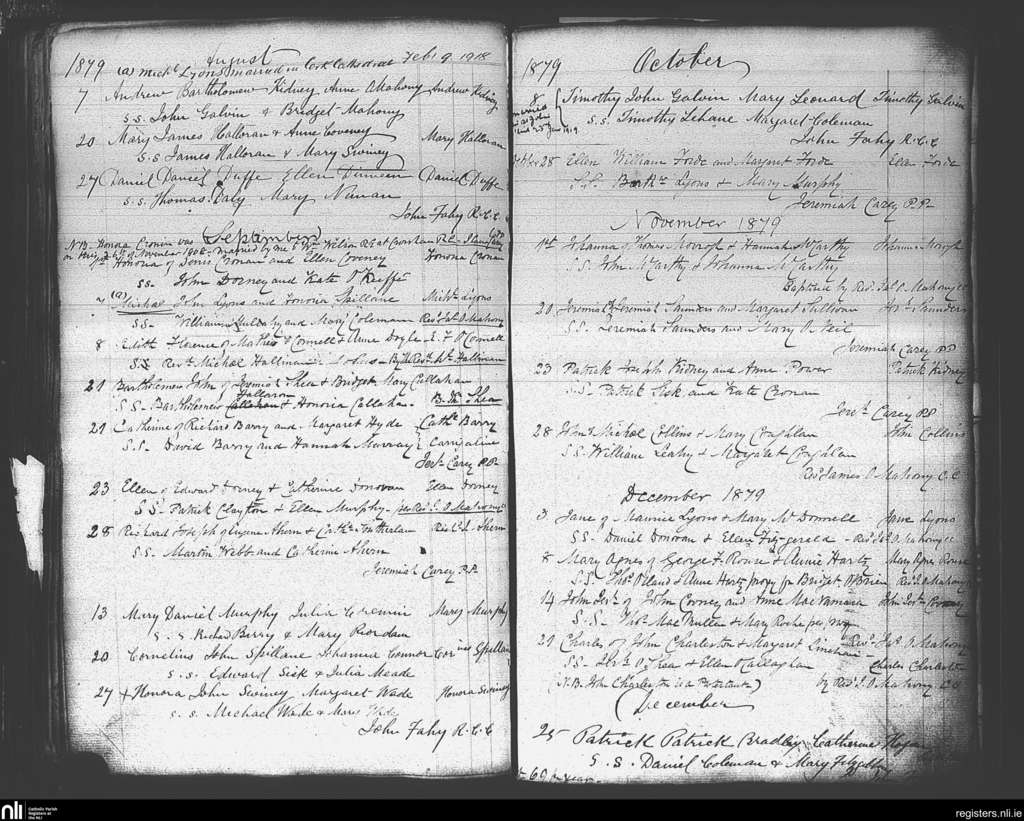 1879 August
(a) Michl Lyons married in Cork Cathedral Feb: 9. 1918
7 Andrew Bartholomew Kidney Anne Mahony Andrew Kidney
S.S. John Galvin & Bridget Mahony
20 Mary James Halloran & Anne Coveney Mary Halloran
S.S James Halloran & Mary Swiney
27 Daniel Daniel Duffe Ellen Daniel Duffe
S.S. Thomas Daly Mary Nunan
John Fahy R.C.C
September
N.B. Honora Cronin was married by me
of November 1908
Honora of Denis Cronan and Ellen Coveney Honora Cronan
SS. John Dorney and Kate O'Keeffe
7 (a) Michael John Lyons and Honoria Spillane Michl Lyons
SS. William and Mary Coleman Revd Jas O. Mahony
8 Edith Florence O'Connell & Anne Doyle E. F O'Connell
S.S Revd Michael
21 Bartholomew John of Jeremiah Shea & Bridget Mary Callahan
Halloran
S.S. Bartholomew Callahan & Honoria Callahan B. Shea
21 Catherine of Richard Barry and Margaret Hyde Cathe Barry
S.S. David Barry and Hannah Murray Carrigaline
Jerh Carey P.P.
23 Ellen of Edward Dorney & Catherine Donovan Ellen Dorney
SS. Patrick Clayton & Ellen Murphy. Revd J. O Mahony
28 Richard Joseph of Eugene Ahern & Cathe
S.S. Martin Webb and Catherine Ahern
Jeremiah Carey P.P.
13 Mary Daniel Murphy Julia Cremin Mary Murphy
S.S. Richard Barry & Mary Riordan
20 Cornelius John Spillane Johanna Connor Cornius Spillane
S.S. Edward Sisk & Julia Meade
27 + Honora John Swiney Margaret Wade Honora Swiney
S.S. Michael Wade & Mary Wade
John Fahy R.C.C
1879 October
8 Timothy John Galvin Mary Leonard Timothy Galvin
S.S. Timothy Lehane Margaret Coleman
John Fahy R.C.C
28 Ellen William Forde and Margaret Forde Ellen Forde
S.S. Barthw Lyons & Mary Murphy
Jeremiah Carey P.P.
November 1879
1st Johanna of Thomas & Hannah McCarthy
S.S. John McCarthy & Johanna McCarthy
Baptised by Revd Jas O. Mahony CC
20 Jeremiah of Jeremiah Saunders and Margaret Sullivan
S.S. Jeremiah Saunders and Mary O'Neil
Jeremiah Carey P.P.
23 Patrick Joseph Kidney and Anne Power Patrick Kidney
S.S. Patrick Sisk and Kate Cronan
Jerh Carey P.P.
28 John of Michael Collins & Mary Coughlan John Collins
SS. William Leahy & Margaret Coughlan
Revd James O. Mahony C.C
December 1879
3 Jane of Maurice Lyons & Mary McDonnell Jane Lyons
SS. Daniel Donovan & Ellen Fitz-gerald Revd Jas O. Mahony CC
8 Mary Agnes of George F. Rouse & Annie Harty Mary Agnes Rouse
S.S. & Anne Harty proxy for Bridget O'Brien Revd J. O. Mahony
14 John Jos. of John Cooney and Anne MacNamara John Jos Cooney
S.S. Thos MacMullen & Mary Roche per proxy
21 Charles of John Charleston & Margaret Linehan Revd Jas O Mahony
SS. Jerh O'Shea & Ellen O'Callaghan Charles Charleston
(N.B. John Charleston is a Protestant) by Revd J. O. Mahony C.C
December
25 Patrick Patrick Bradley Catherine Hogan
S.S. Daniel Coleman & Mary
nli Catholic Parish Registers at the NLI
registers.nli.ie